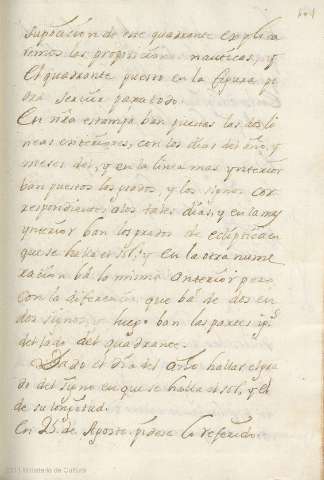 suposicion de este quadrante explica
remos las proposiciones nauticas, y
el quadrante puesto en la figura po
dra servir para todo.
En nra estampa ban puestas las dos li
neas enteriores, con los dias del año, y
meses del, y en la linea mas ynterior
ban puestos los grados, y los signos cor
respondientes a los tales dias, y en la mas
ynterior ban los grados de ecliptica en
que se halla el sol; y en la otra nume
racion bá lo mismo anterior pero
con la diferencia que bá de dos en
dos signos, y luego ban las partes
del lado del quadrante.
Dado el dia del año hallar el gra
do del signo en que se halla el sol, y el
de su longitud.
En 25 de Agosto pidese lo referido.
2011 Ministerio de Cultura